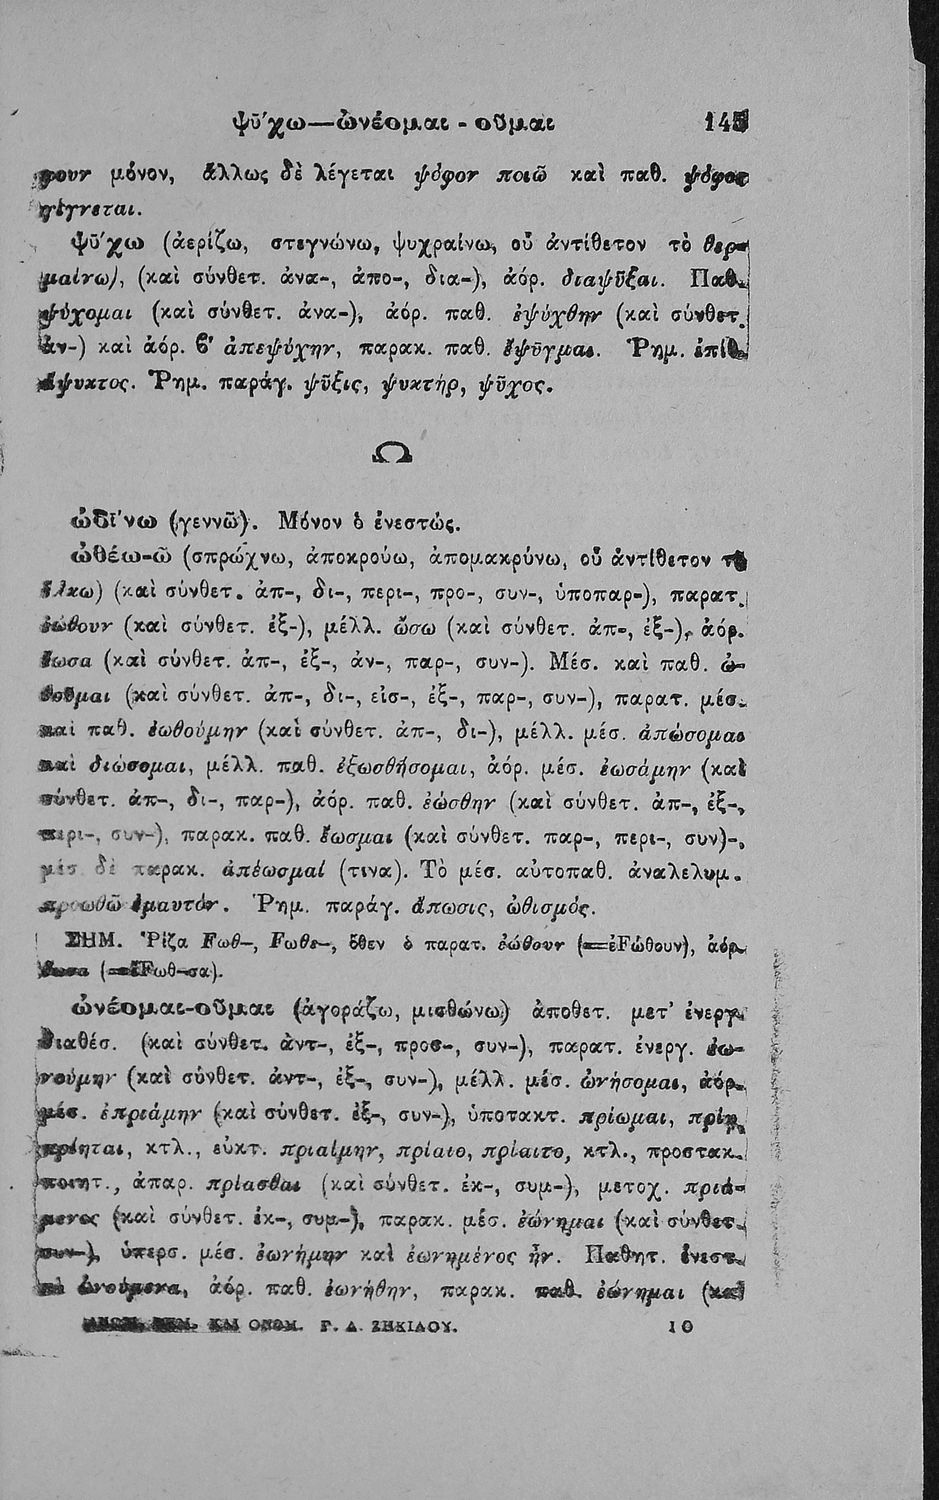 ψῡ́χω—ὠνέομαι - οῦμαι 145
φουν μόνον, ἄλλως δὲ λέγεται ψόφον ποιῶ καὶ παθ. ψόφος
γίγνεται.
ψῡ́χω (ἀερίζω, στεγνώνω, ψυχραίνω, οὗ ἀντίθετον τὸ θερ-
μαίνω), (καὶ σύνθετ. ἀνα-, ἀπο-, δια-), ἀόρ. διαψῦξαι. Παθ.
ψύχομαι (καὶ σύνθετ. ἀνα-), ἀόρ. παθ. ἐψύχθην (καὶ σύνθετ.
ἀν-) καὶ ἀόρ. ϐ′ ἀπεψύχην, παρακ. παθ. ἔψῡγμαι. Ῥημ. ἐπίθ.
ἄψυκτος. Ῥημ. παράγ. ψῦξις, ψυκτήρ, ψῦχος.
Ω
ὠδῑ́νω (γεννῶ). Μόνον ὁ ἐνεστώς.
ὠθέω-ῶ (σπρώχνω, ἀποκρούω, ἀπομακρύνω, οὗ ἀντίθετον τὸ
ἕλκω) (καὶ σύνθετ. ἀπ-, δι-, περι-, προ-, συν-, ὑποπαρ-), παρατ.
ἐώθουν (καὶ σύνθετ. ἐξ-), μέλλ. ὤσω (καὶ σύνθετ. ἀπ-, ἐξ-), ἀόρ.
ἔωσα (καὶ σύνθετ. ἀπ-, ἐξ-, ἀν-, παρ-, συν-). Μέσ. καὶ παθ. ὠ-
θοῦμαι (καὶ σύνθετ. ἀπ-, δι-, εἰσ-, ἐξ-, παρ-, συν-), παρατ. μέσ.
καὶ παθ. ἐωθούμην (καὶ σύνθετ. ἀπ-, δι-), μέλλ. μέσ. ἀπώσομαι
καὶ διώσομαι, μέλλ. παθ. ἐξωσθήσομαι, ἀόρ. μέσ. ἐωσάμην (καὶ
σύνθετ. ἀπ-, δι-, παρ-), ἀόρ. παθ. ἐώσθην (καὶ σύνθετ. ἀπ-, ἐξ-,
περι-, συν-), παρακ. παθ. ἔωσμαι (καὶ σύνθετ. παρ-, περι-, συν)-,
μέσ. δὲ παρακ. ἀπέωσμαί (τινα). Τὸ μέσ. αὐτοπαθ. ἀναλελυμ.
προωθῶ ἐμαυτόν. Ῥημ. παράγ. ἄπωσις, ὠθισμός.
ΣΗΜ. Ῥίζα Fωθ-, Fωθε-, ὅθεν ὁ παρατ. ἐώθουν (=ἐFώθουν), ἀόρ.
ἔωσα (=ἔFωθ-σα).
ὠνέομαι-οῦμαι (ἀγοράζω, μισθώνω) ἀποθετ. μετ’ ἐνεργ.
διαθέσ. (καὶ σύνθετ. ἀντ-, ἐξ-, προσ-, συν-), παρατ. ἐνεργ. ἐω-
νούμην (καὶ σύνθετ. ἀντ-, ἐξ-, συν-), μέλλ. μέσ. ὠνήσομαι, ἀόρ.
μέσ. ἐπριάμην (καὶ σύνθετ. ἐξ-, συν-), ὑποτακτ. πρίωμαι, πρίῃ,
πρίηται, κτλ., εὐκτ. πριαίμην, πρίαιο, πρίαιτο, κτλ., προστακ.
ποιητ., ἀπαρ. πρίασθαι (καὶ σύνθετ. ἐκ-, συμ-), μετοχ. πριά-
μενος (καὶ σύνθετ. ἐκ-, συμ-), παρακ. μέσ. ἐώνημαι (καὶ σύνθετ.
συν-), ὑπερσ. μέσ. ἐωνήμην καὶ ἐωνημένος ἦν. Παθητ. ἐνεστ.
τὰ ὠνούμενα, ἀόρ. παθ. ἐωνήθην, παρακ. παθ. ἐώνημαι (καὶ
ΚΑΙ ΟΝΟΜ. Γ. Δ. ΖΗΚΙΔΟΥ. 10